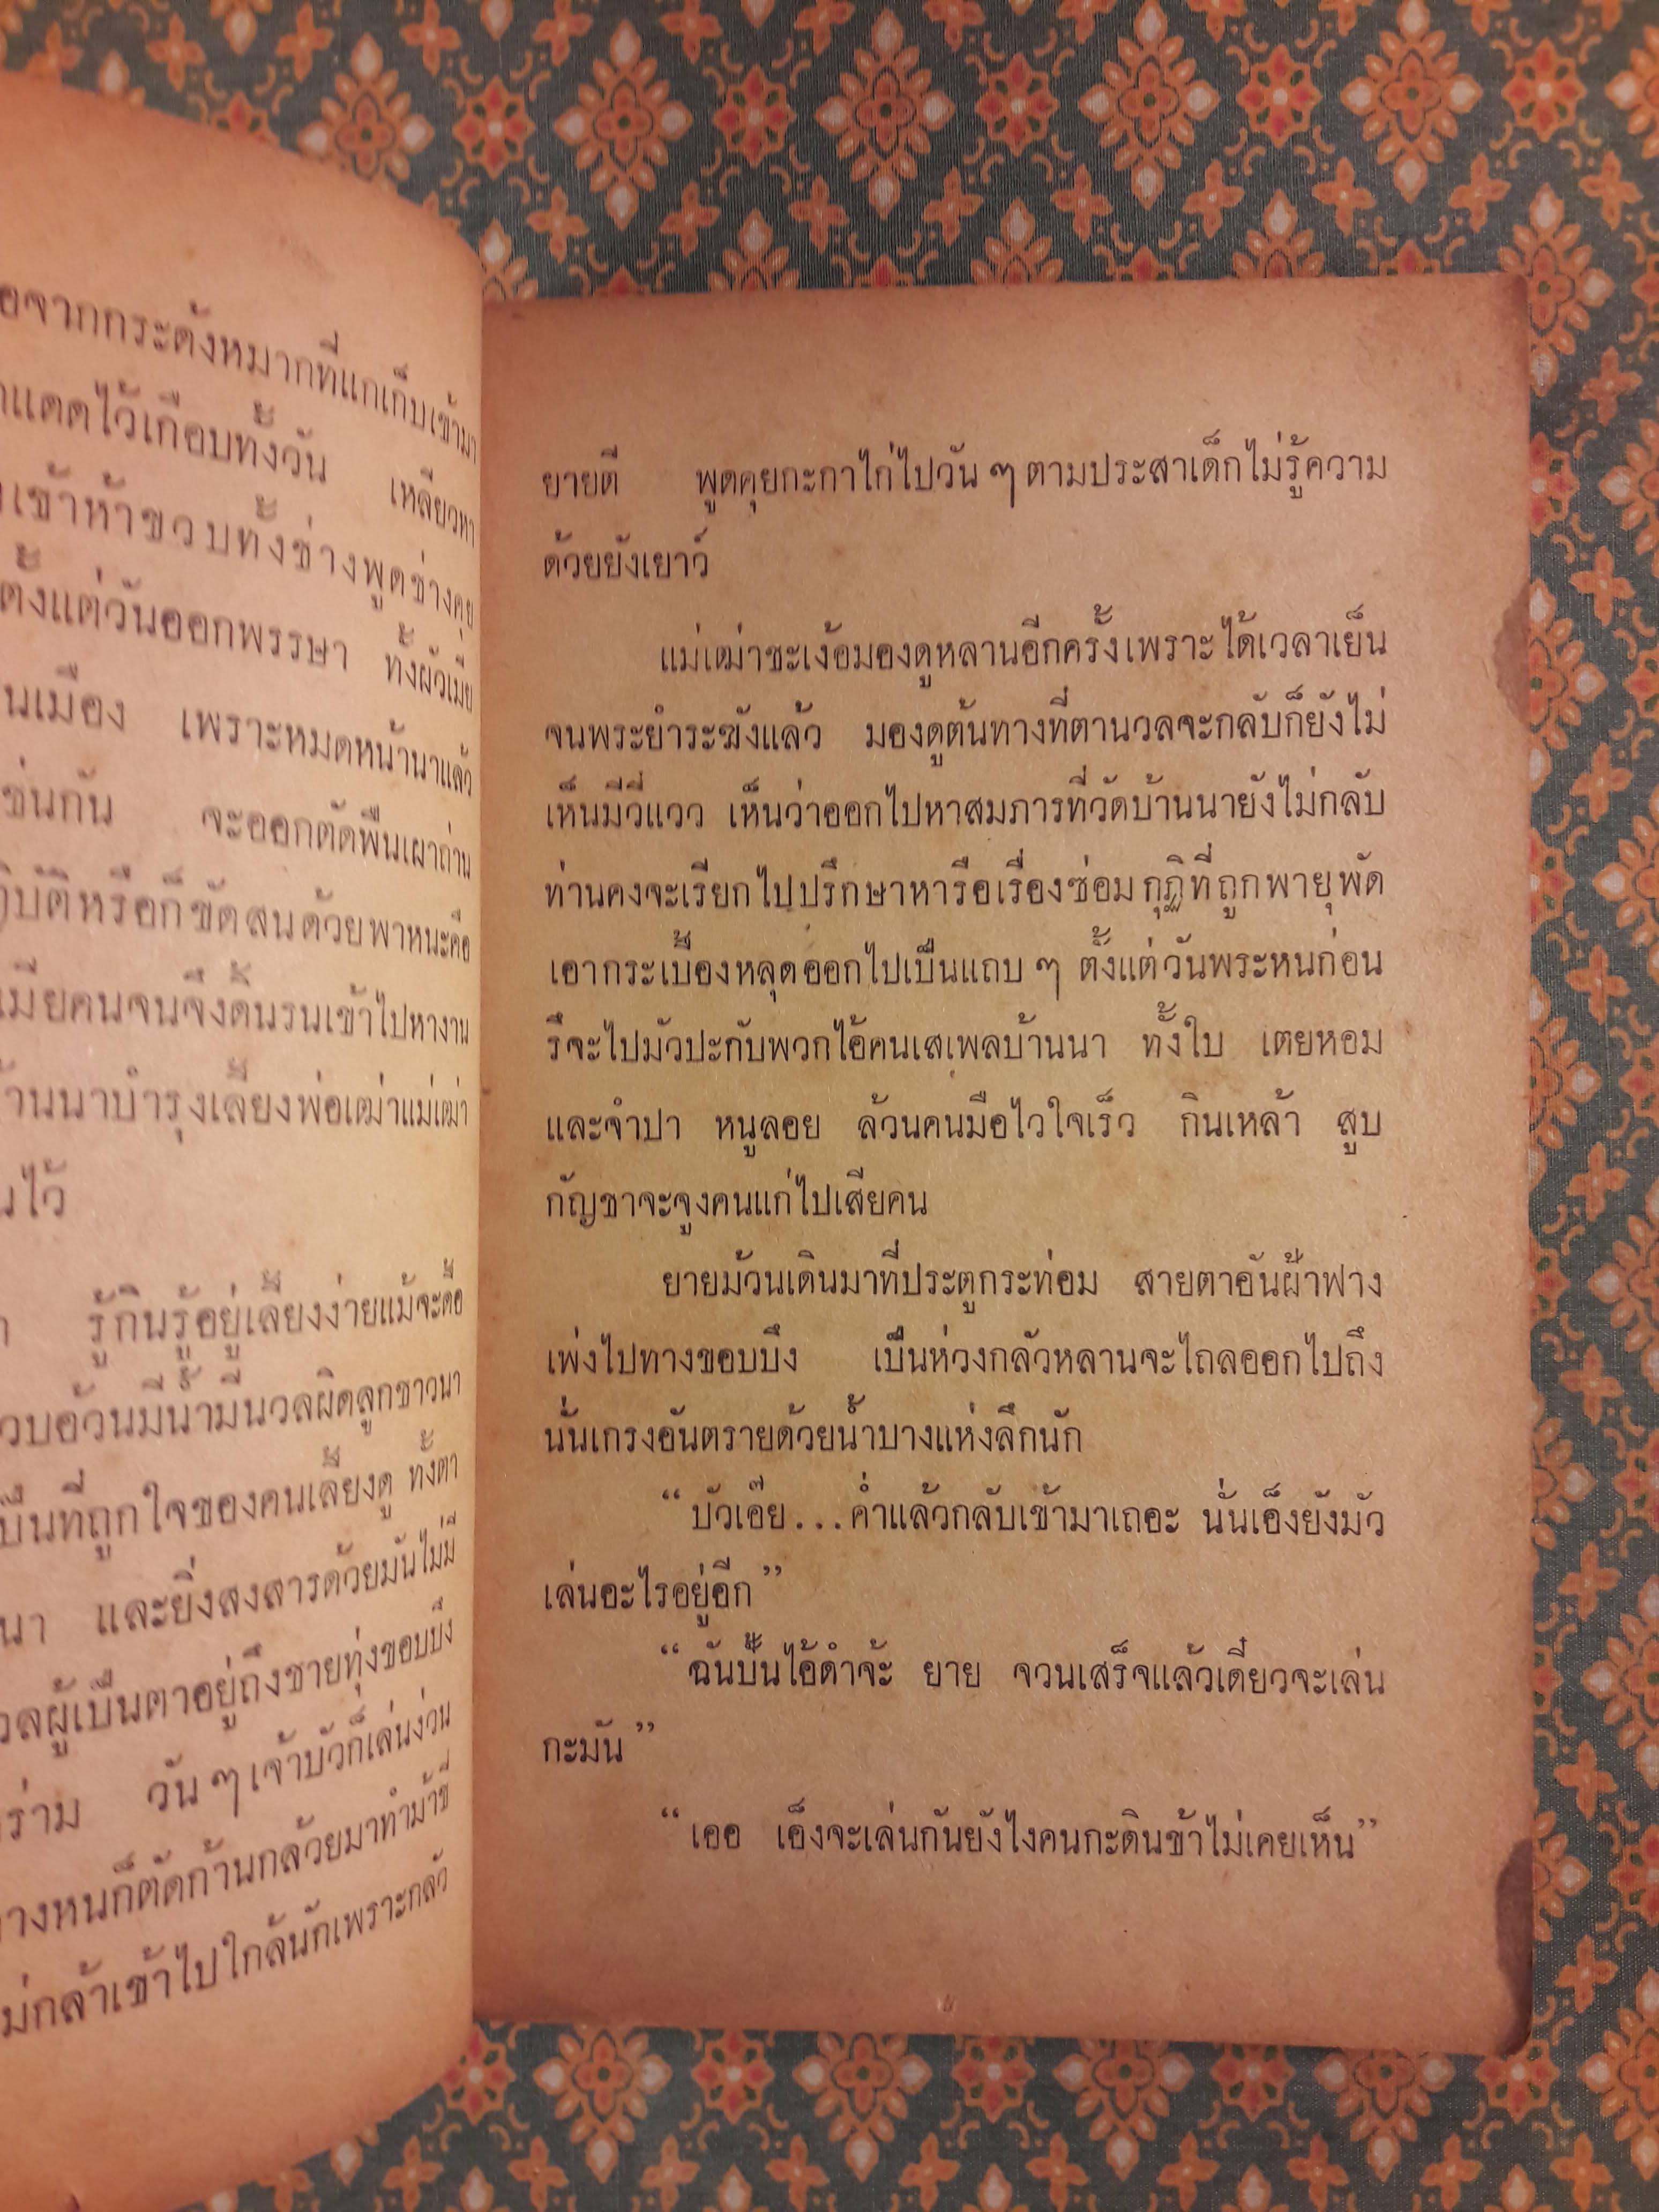 อจากกระด้งหมากที่แกเก็บเข้ามา
แดดไว้เกือบทั้งวัน เหลียวหา
เข้าห้าขวบทั้งช่างพูดช่างคุย
ตั้งแต่วันออกพรรษา ทั้งผัวเมีย
นเมือง เพราะหมดหน้านาแล้ว
ช่นกัน จะออกตัดฟืนเผาถ่าน
ิบัติหรือก็ขัดสนด้วยพาหนะคือ
เมียคนจนจึงดิ้นรนเข้าไปหางาน
้านนาบำรุงเลี้ยงพ่อเฒ่าแม่เฒ่า
นไว้
รู้กินรู้อยู่เลี้ยงง่ายแม้จะดื้อ
วบอ้วนมีน้ำมีนวลผิดลูกชาวนา
เป็นที่ถูกใจของคนเลี้ยงดู ทั้งตา
นา และยิ่งสงสารด้วยมันไม่มี
วลผู้เป็นตาอยู่ถึงชายทุ่งขอบบึง
ร่าม วัน ๆ เจ้าบัวก็เล่นง่วน
างหนก็ตัดก้านกล้วยมาทำม้าขี่
ม่กล้าเข้าไปใกล้นักเพราะกลัว
ยายตี พูดคุยกะกาไก่ไปวัน ๆ ตามประสาเด็กไม่รู้ความ
ด้วยยังเยาว์
แม่เฒ่าชะเง้อมองดูหลานอีกครั้งเพราะได้เวลาเย็น
จนพระย่ำระฆังแล้ว มองดูต้นทางที่ตานวลจะกลับก็ยังไม่
เห็นมีวี่แวว เห็นว่าออกไปหาสมภารที่วัดบ้านนายังไม่กลับ
ท่านคงจะเรียกไปปรึกษาหารือเรื่องซ่อมกุฏิที่ถูกพายุพัด
เอากระเบื้องหลุดออกไปเป็นแถบ ๆ ตั้งแต่วันพระหนก่อน
รึจะไปมัวปะกับพวกไอ้คนเสเพลบ้านนา ทั้งใบ เตยหอม
และจำปา หนูลอย ล้วนคนมือไวใจเร็ว กินเหล้า สูบ
กัญชาจะจูงคนแก่ไปเสียคน
ยายม้วนเดินมาที่ประตูกระท่อม สายตาอันฝ้าฟาง
เพ่งไปทางขอบบึง เป็นห่วงกลัวหลานจะไถลออกไปถึง
นั่นเกรงอันตรายด้วยน้ำบางแห่งลึกนัก
“บัวเอ๊ย...ค่ำแล้วกลับเข้ามาเถอะ นั่นเอ็งยังมัว
เล่นอะไรอยู่อีก”
“ฉันปั้นไอ้ดำจ้ะ ยาย จวนเสร็จแล้วเดี๋ยวจะเล่น
กะมัน”
“เออ เอ็งจะเล่นกันยังไงคนกะดินข้าไม่เคยเห็น”